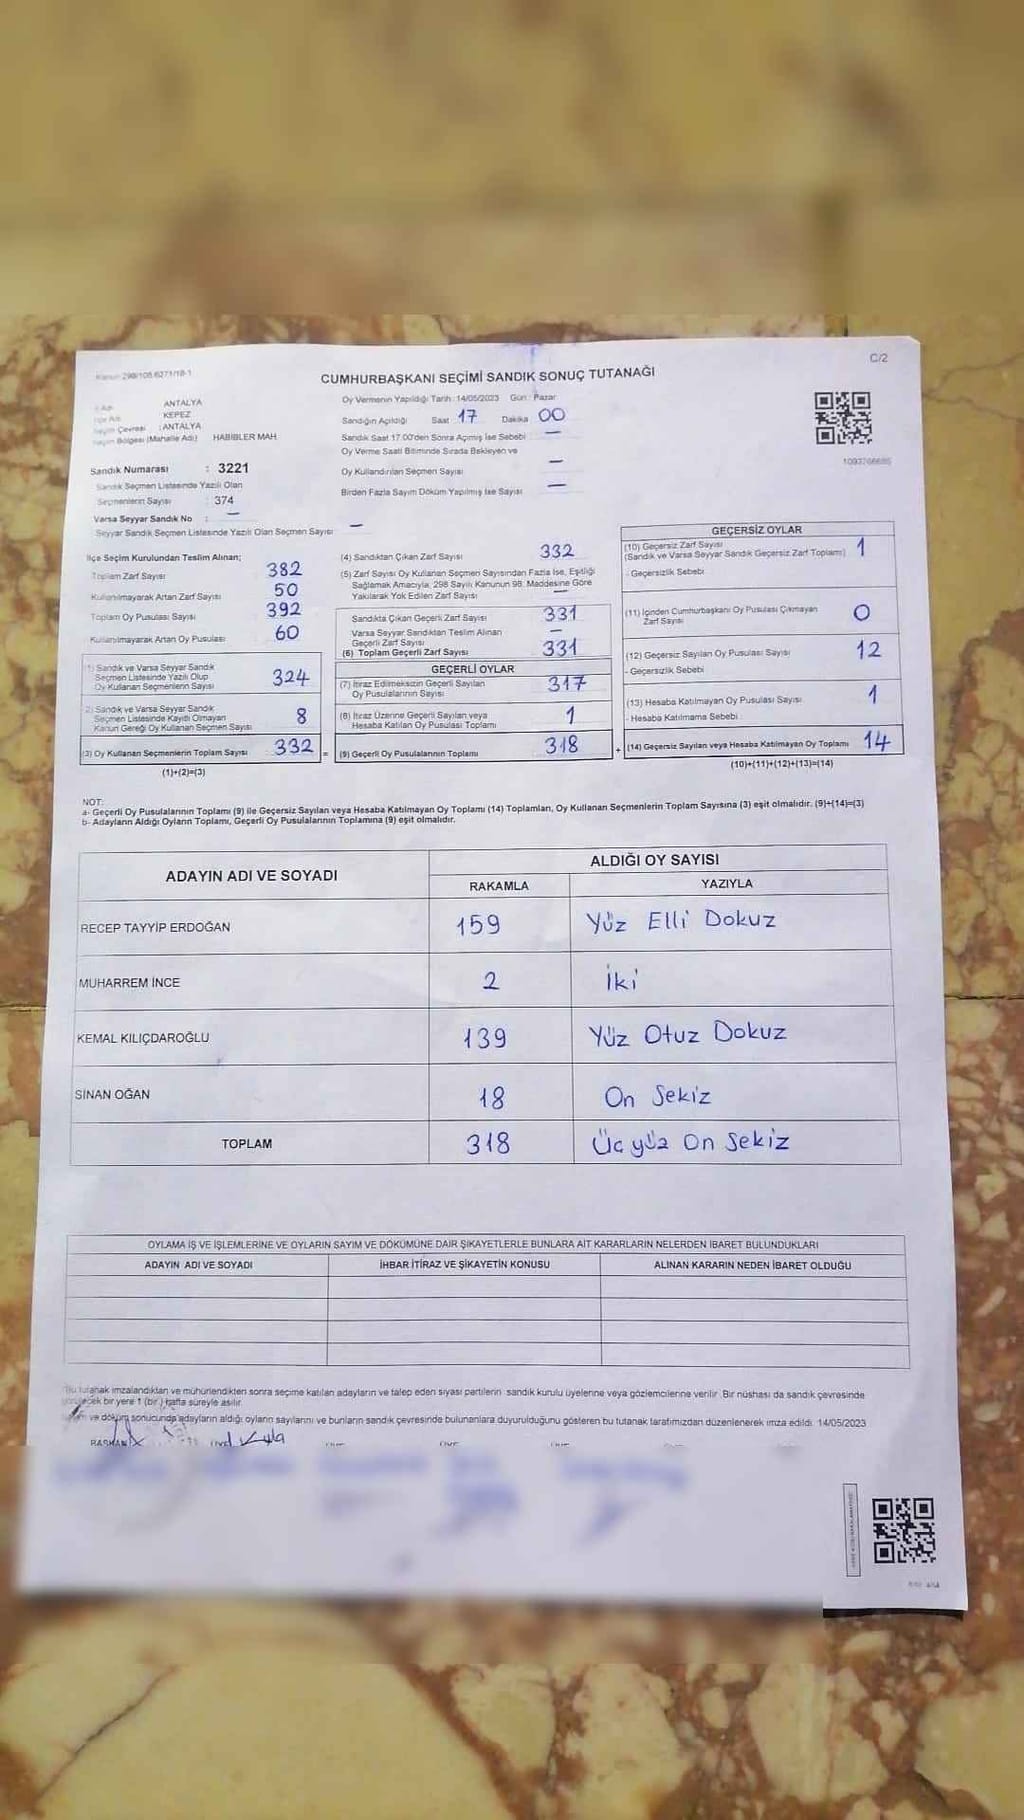 C/2
CUMHURBAŞKANI SEÇİMİ SANDIK SONUÇ TUTANAĞI
ANTALYA
KEPEZ
Seçim Çevresi : ANTALYA
Seçim Bölgesi (Mahalle Adı) HABİBLER MAH
Sandık Numarası : 3221
Sandık Seçmen Listesinde Yazılı Olan
Seçmenlerin Sayısı : 374
Varsa Seyyar Sandık No : —
Seyyar Sandık Seçmen Listesinde Yazılı Olan Seçmen Sayısı —
Oy Vermenin Yapıldığı Tarih : 14/05/2023 Gün : Pazar
Sandığın Açıldığı Saat 17 Dakika 00
Sandık Saat 17.00'den Sonra Açılmış İse Sebebi —
Oy Verme Saati Bitiminde Sırada Bekleyen ve
Oy Kullandırılan Seçmen Sayısı —
Birden Fazla Sayım Döküm Yapılmış İse Sayısı —
1093766685
İlçe Seçim Kurulundan Teslim Alınan;
Toplam Zarf Sayısı 382
Kullanılmayarak Artan Zarf Sayısı 50
Toplam Oy Pusulası Sayısı 392
Kullanılmayarak Artan Oy Pusulası 60
(1) Sandık ve Varsa Seyyar Sandık
Seçmen Listesinde Yazılı Olup
Oy Kullanan Seçmenlerin Sayısı 324
(2) Sandık ve Varsa Seyyar Sandık
Seçmen Listesinde Kayıtlı Olmayan
Kanun Gereği Oy Kullanan Seçmen Sayısı 8
(3) Oy Kullanan Seçmenlerin Toplam Sayısı 332 =
(1)+(2)=(3)
(4) Sandıktan Çıkan Zarf Sayısı 332
(5) Zarf Sayısı Oy Kullanan Seçmen Sayısından Fazla İse, Eşitliği
Sağlamak Amacıyla, 298 Sayılı Kanunun 98. Maddesine Göre
Yakılarak Yok Edilen Zarf Sayısı —
Sandıkta Çıkan Geçerli Zarf Sayısı 331
Varsa Seyyar Sandıktan Teslim Alınan
Geçerli Zarf Sayısı —
(6) Toplam Geçerli Zarf Sayısı 331
GEÇERLİ OYLAR
(7) İtiraz Edilmeksizin Geçerli Sayılan
Oy Pusulalarının Sayısı 317
(8) İtiraz Üzerine Geçerli Sayılan veya
Hesaba Katılan Oy Pusulası Toplamı 1
(9) Geçerli Oy Pusulalarının Toplamı 318 +
GEÇERSİZ OYLAR
(10) Geçersiz Zarf Sayısı
(Sandık ve Varsa Seyyar Sandık Geçersiz Zarf Toplamı) 1
- Geçersizlik Sebebi
(11) İçinden Cumhurbaşkanı Oy Pusulası Çıkmayan
Zarf Sayısı 0
(12) Geçersiz Sayılan Oy Pusulası Sayısı 12
- Geçersizlik Sebebi
(13) Hesaba Katılmayan Oy Pusulası Sayısı 1
- Hesaba Katılmama Sebebi
(14) Geçersiz Sayılan veya Hesaba Katılmayan Oy Toplamı 14
(10)+(11)+(12)+(13)=(14)
NOT:
a- Geçerli Oy Pusulalarının Toplamı (9) ile Geçersiz Sayılan veya Hesaba Katılmayan Oy Toplamı (14) Toplamları, Oy Kullanan Seçmenlerin Toplam Sayısına (3) eşit olmalıdır. (9)+(14)=(3)
b- Adayların Aldığı Oyların Toplamı, Geçerli Oy Pusulalarının Toplamına (9) eşit olmalıdır.
ADAYIN ADI VE SOYADI
ALDIĞI OY SAYISI
RAKAMLA YAZIYLA
RECEP TAYYİP ERDOĞAN 159 Yüz Elli Dokuz
MUHARREM İNCE 2 İki
KEMAL KILIÇDAROĞLU 139 Yüz Otuz Dokuz
SİNAN OĞAN 18 On Sekiz
TOPLAM 318 Üç yüz On Sekiz
OYLAMA İŞ VE İŞLEMLERİNE VE OYLARIN SAYIM VE DÖKÜMÜNE DAİR ŞİKAYETLERLE BUNLARA AİT KARARLARIN NELERDEN İBARET BULUNDUKLARI
ADAYIN ADI VE SOYADI İHBAR İTİRAZ VE ŞİKAYETİN KONUSU ALINAN KARARIN NEDEN İBARET OLDUĞU
Bu tutanak imzalandıktan ve mühürlendikten sonra seçime katılan adayların ve talep eden siyasi partilerin sandık kurulu üyelerine veya gözlemcilerine verilir. Bir nüshası da sandık çevresinde
görülecek bir yere 1 (bir) hafta süreyle asılır.
ve döküm sonucunda adayların aldığı oyların sayılarını ve bunların sandık çevresinde bulunanlara duyurulduğunu gösteren bu tutanak tarafımızdan düzenlenerek imza edildi. 14/05/2023
BAŞKAN